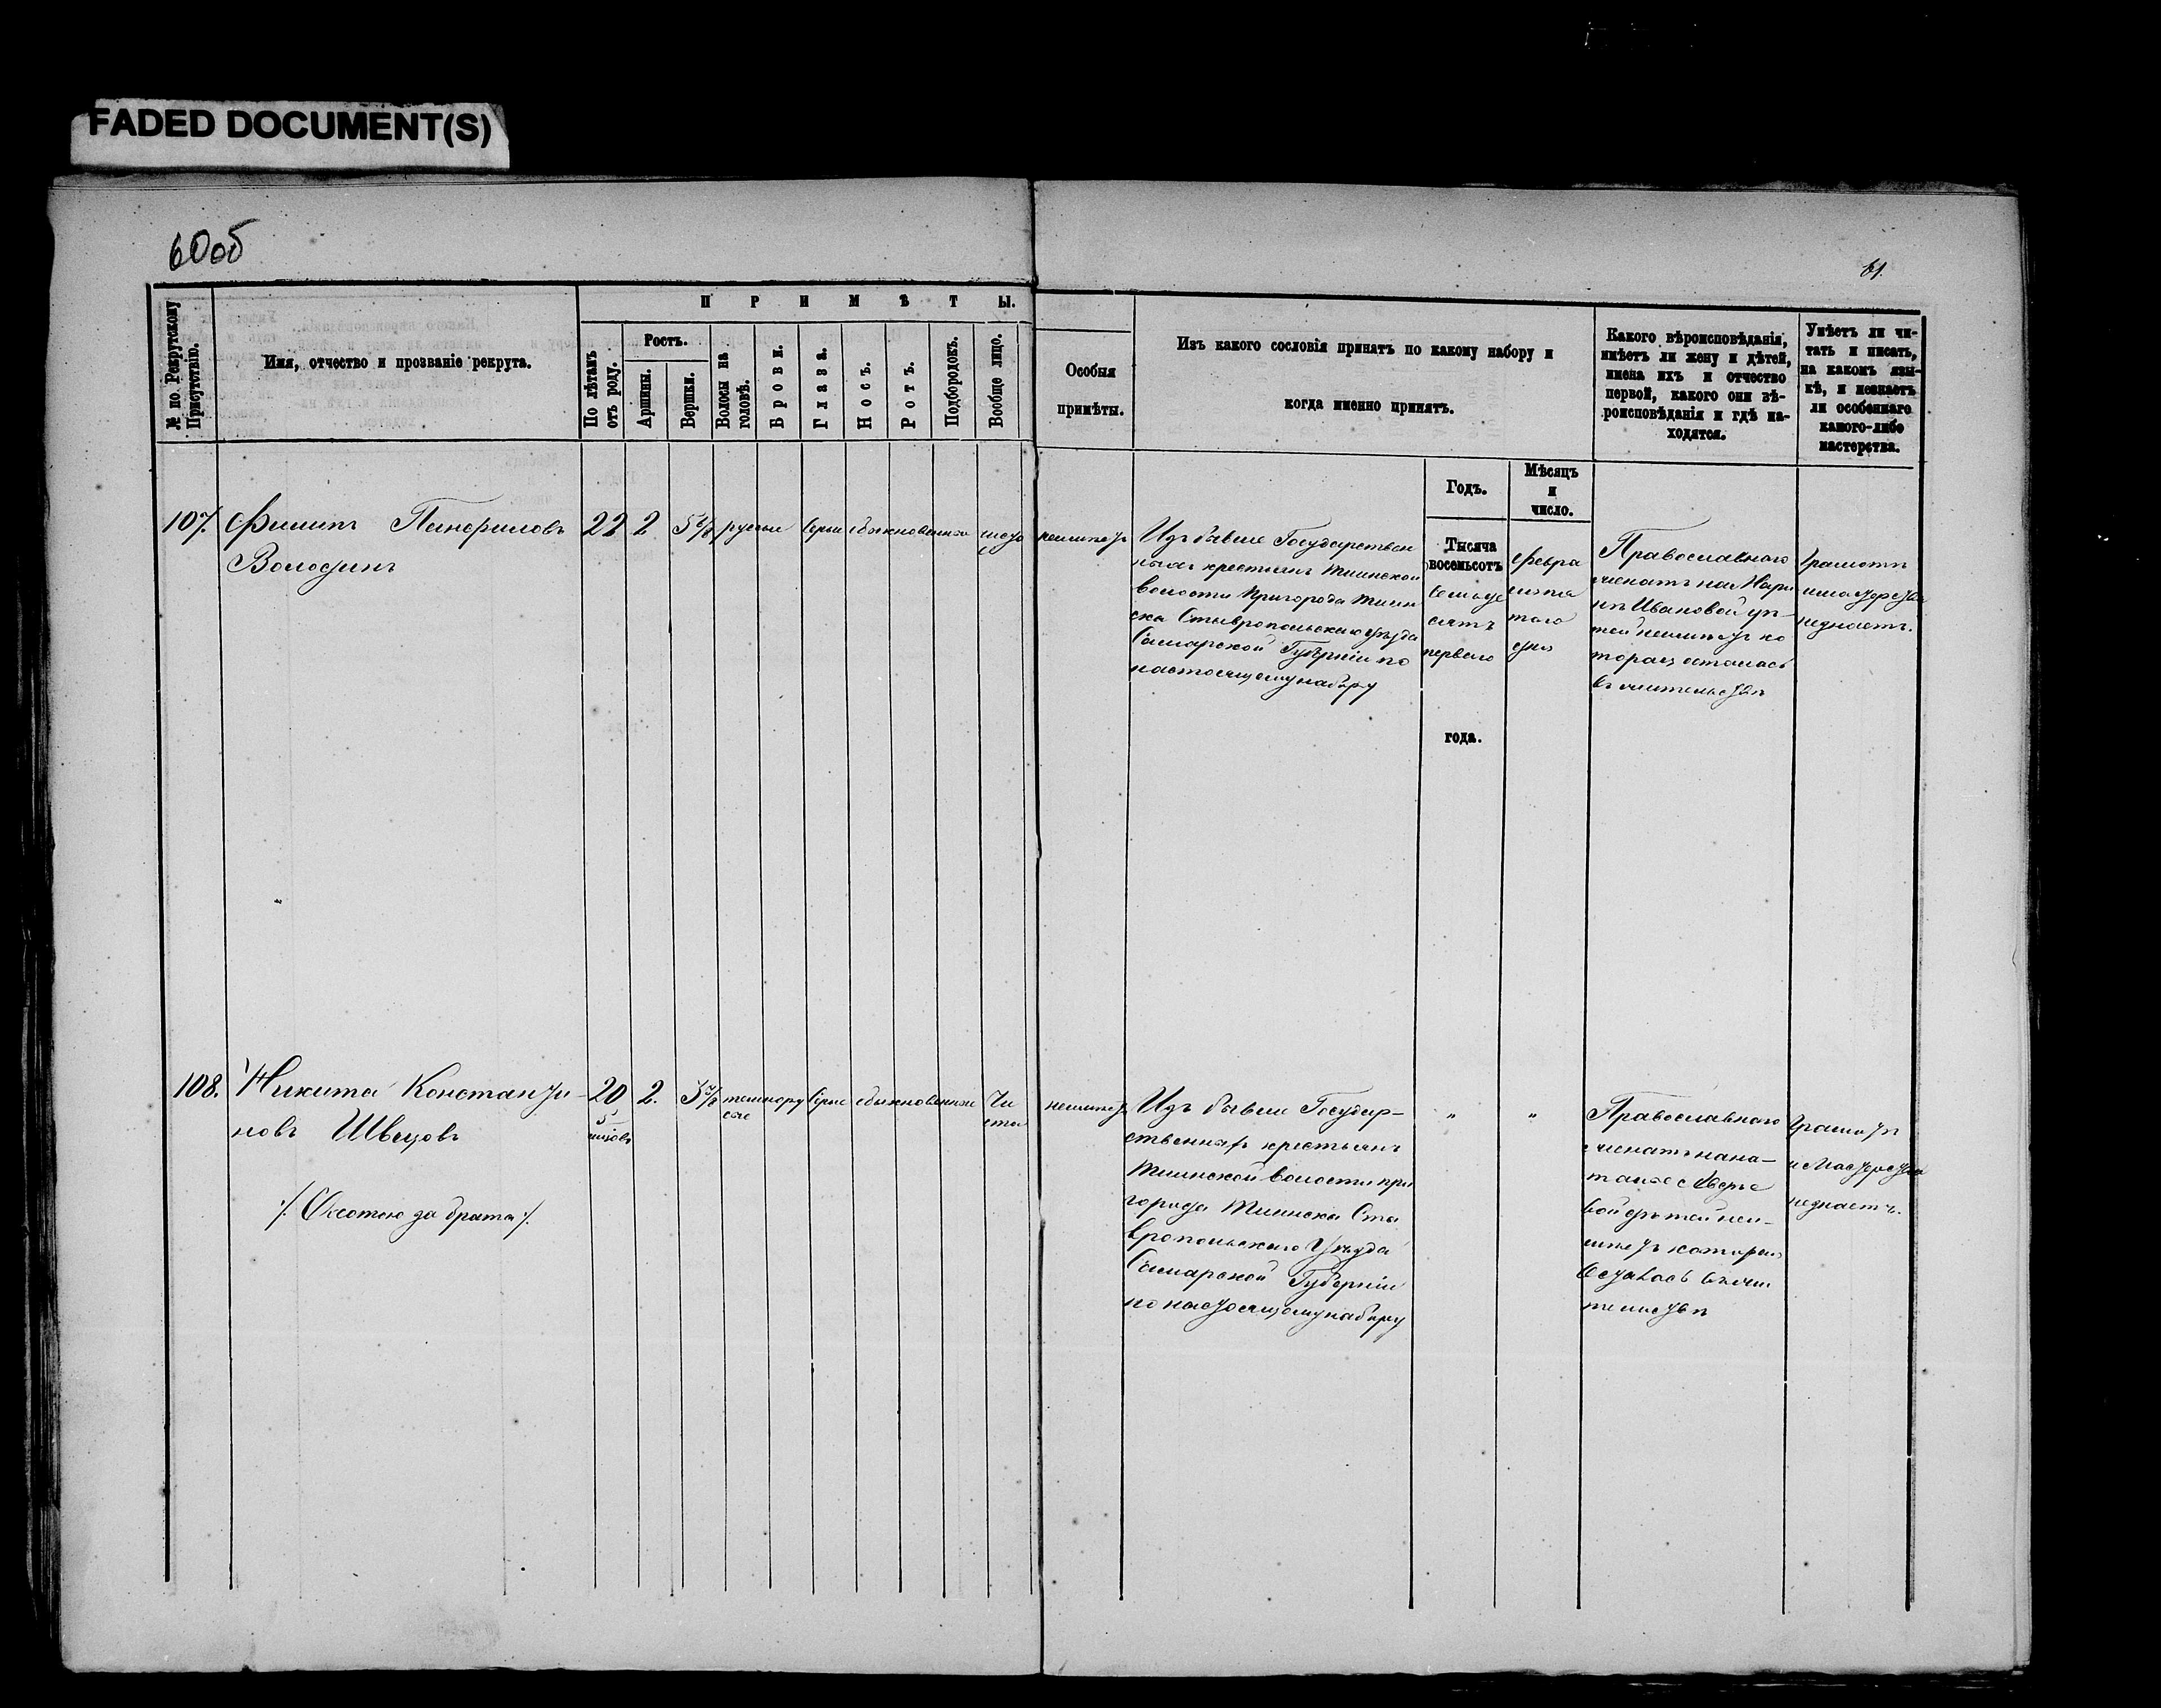 FADED DOCUMENT(S)
60об
61.
№ по Рекрутскому Присутствію.
Имя, отчество и прозваніе рекрута.
ПРИМѢТЫ.
По лѣтамъ отъ роду.
Ростъ.
Аршины.
Вершки.
Волосы на головѣ.
Брови.
Глаза.
Носъ.
Ротъ.
Подбородокъ.
Вообще лицо.
Особыя
примѣты.
Изъ какого сословія принятъ по какому набору и
когда именно принятъ.
Какого вѣроисповѣданія,
имѣетъ ли жену и дѣтей,
имена ихъ и отчество
первой, какого они вѣ-
роисповѣданія и гдѣ на-
ходятся.
Умѣетъ ли чи-
тать и писать,
на какомъ язы-
кѣ, и незнаетъ
ли особеннаго
какого-либо
мастерства.
Годъ.
Мѣсяцъ
и
число.
107. Филипъ Панфиловъ 22 2 русые серые обыкновенные
Володинъ
неимѣетъ
Изъ бывше Государствен
ныхъ крестьянъ Тіинской
волости пригорода Тіин
ска Ставропольскаго уѣзда
Самарской Губерніи по
настоящему набору
Тысяча
восемьсотъ
семьде
сятъ
перваго
года.
февра
того
дня
Православнаго
женатъ на Мари
нѣ Ивановой дѣ-
тей неимѣетъ ко
торая осталась
въ жительствѣ
грамотѣ
имастерства
незнаетъ.
108. Никита Константи- 20 2. темнору серые обыкновенные Чи
новъ Швецовъ 5 сые стое
/. Охотою за брата ./
неимѣетъ
Изъ бывше Государ-
ственныхъ крестьянъ
Тіинской волости при
города Тіинска Ста
вропольскаго Уѣзда
Самарской Губерніи
по настоящему набору
" "
Православнаго
женатъ на На-
вой дѣтей неи-
мѣетъ которая
осталась въ жи
тельствѣ
Грамотѣ
и мастерства
незнаетъ.